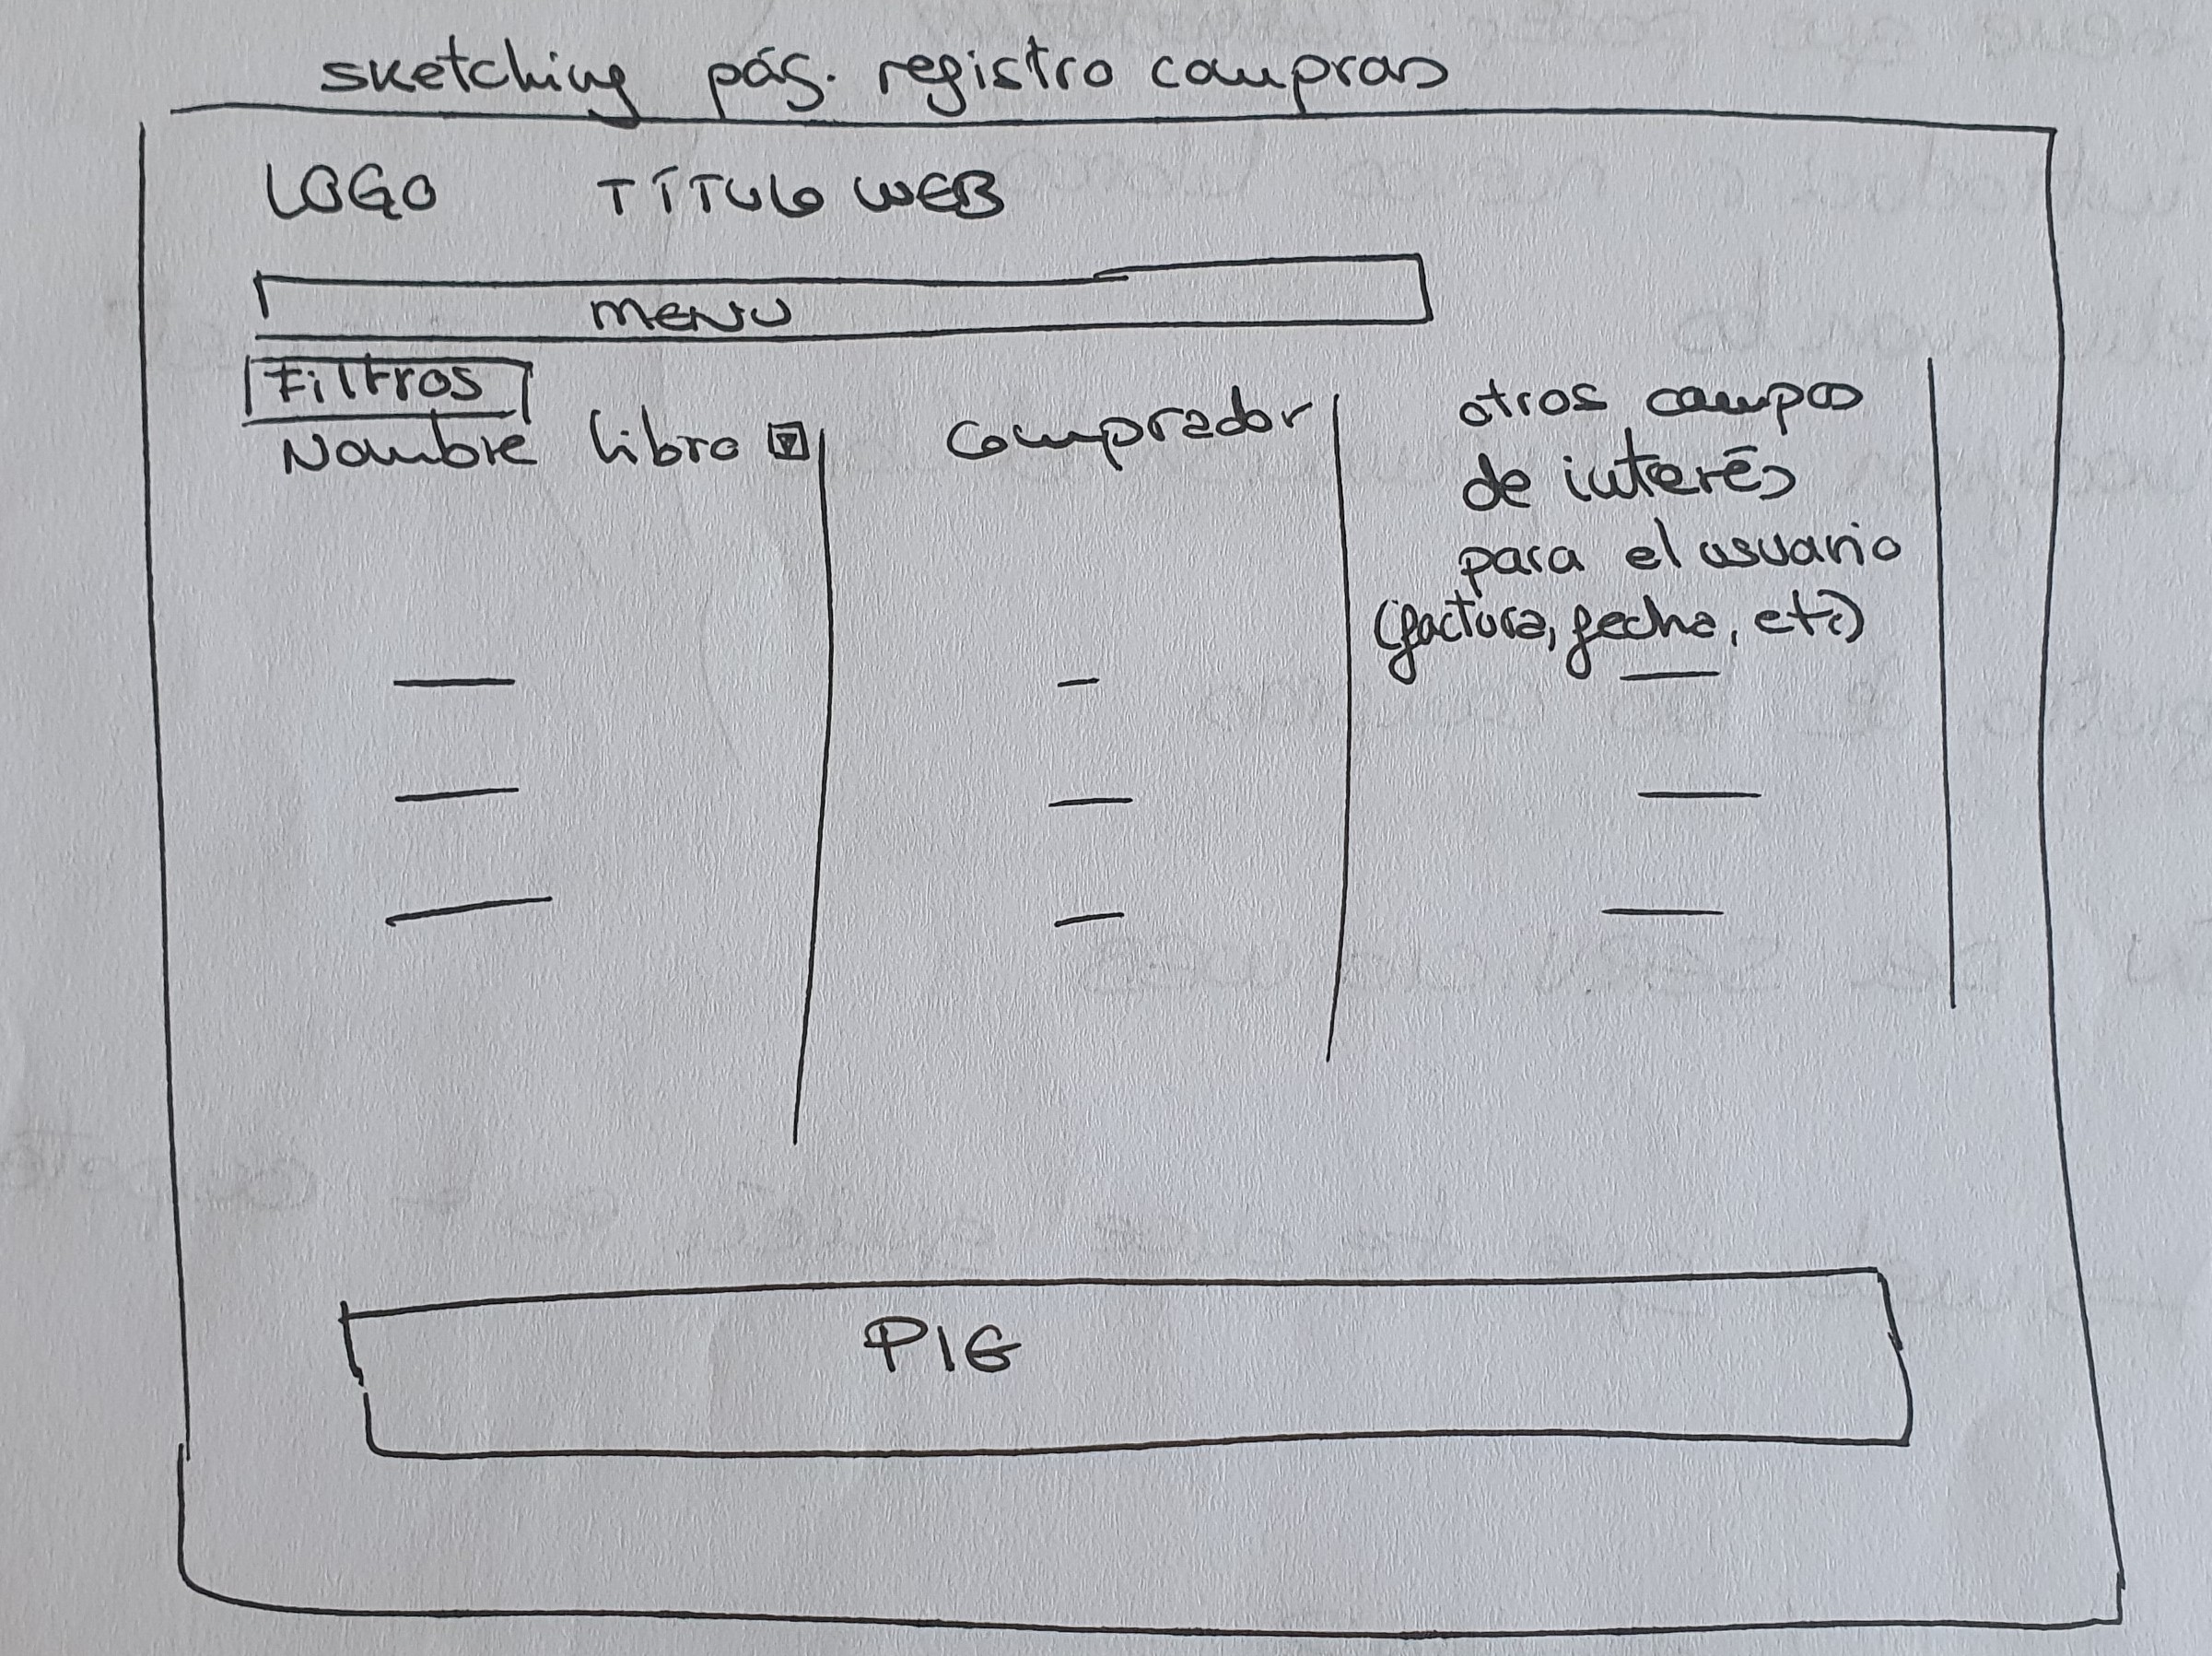 sketching pág. registro compras
LOGO TÍTULO WEB
MENU
Filtros
Nombre libro
Comprador
otros campos
de interés
para el usuario
(factura, fecha, etc)
PIE